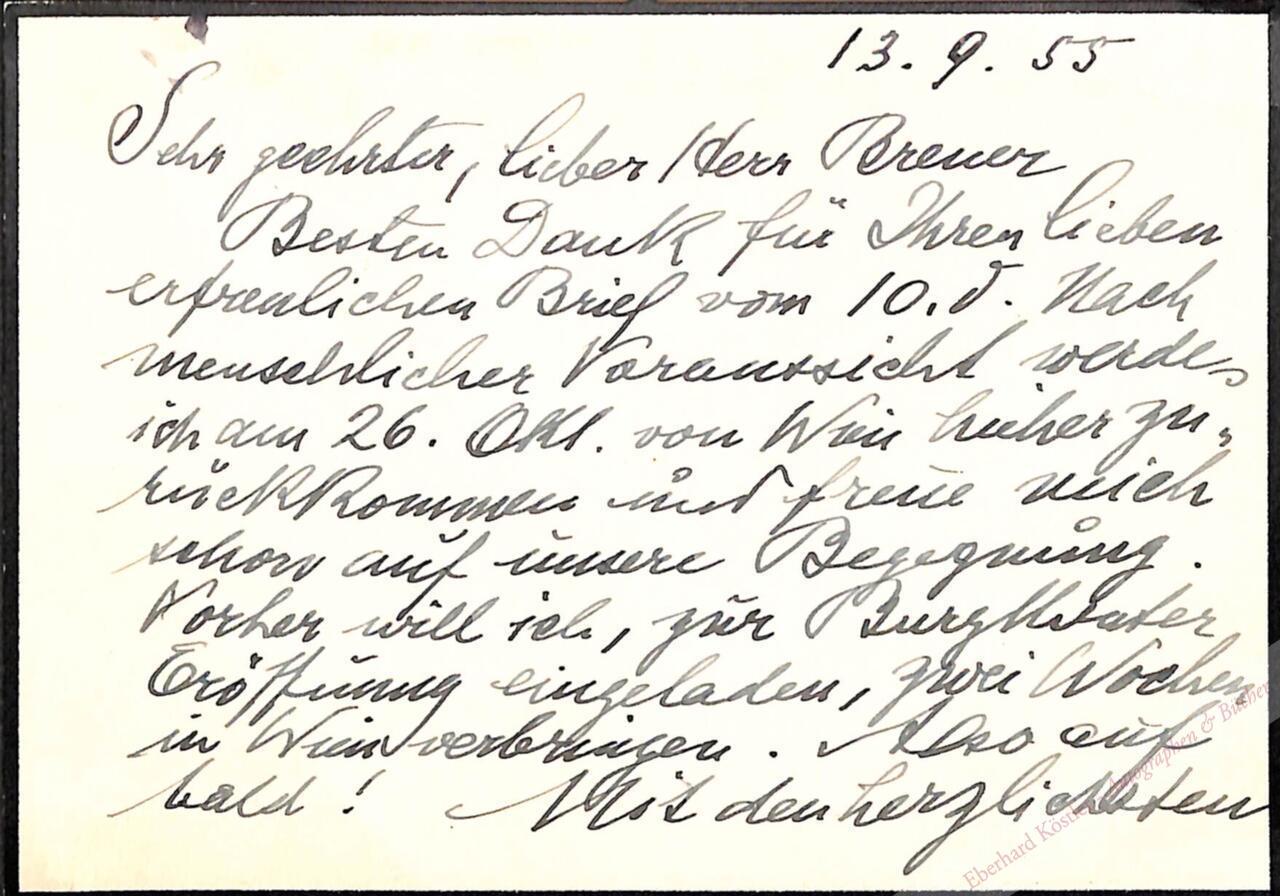 13. 9. 55
Sehr geehrter, lieber Herr Breuer
Besten Dank für Ihren lieben
erfreulichen Brief vom 10. d. Nach
menschlicher Voraussicht werde
ich am 26. Okt. von Wien hieher zu-
rückkommen und freue mich
schon auf unsere Begegnung.
Vorher will ich, zur Burgtheater
Eröffnung eingeladen, zwei Wochen
in Wien verbringen. Also auf
bald! Mit den herzlichsten
Eberhard Köstler Autographen & Bücher